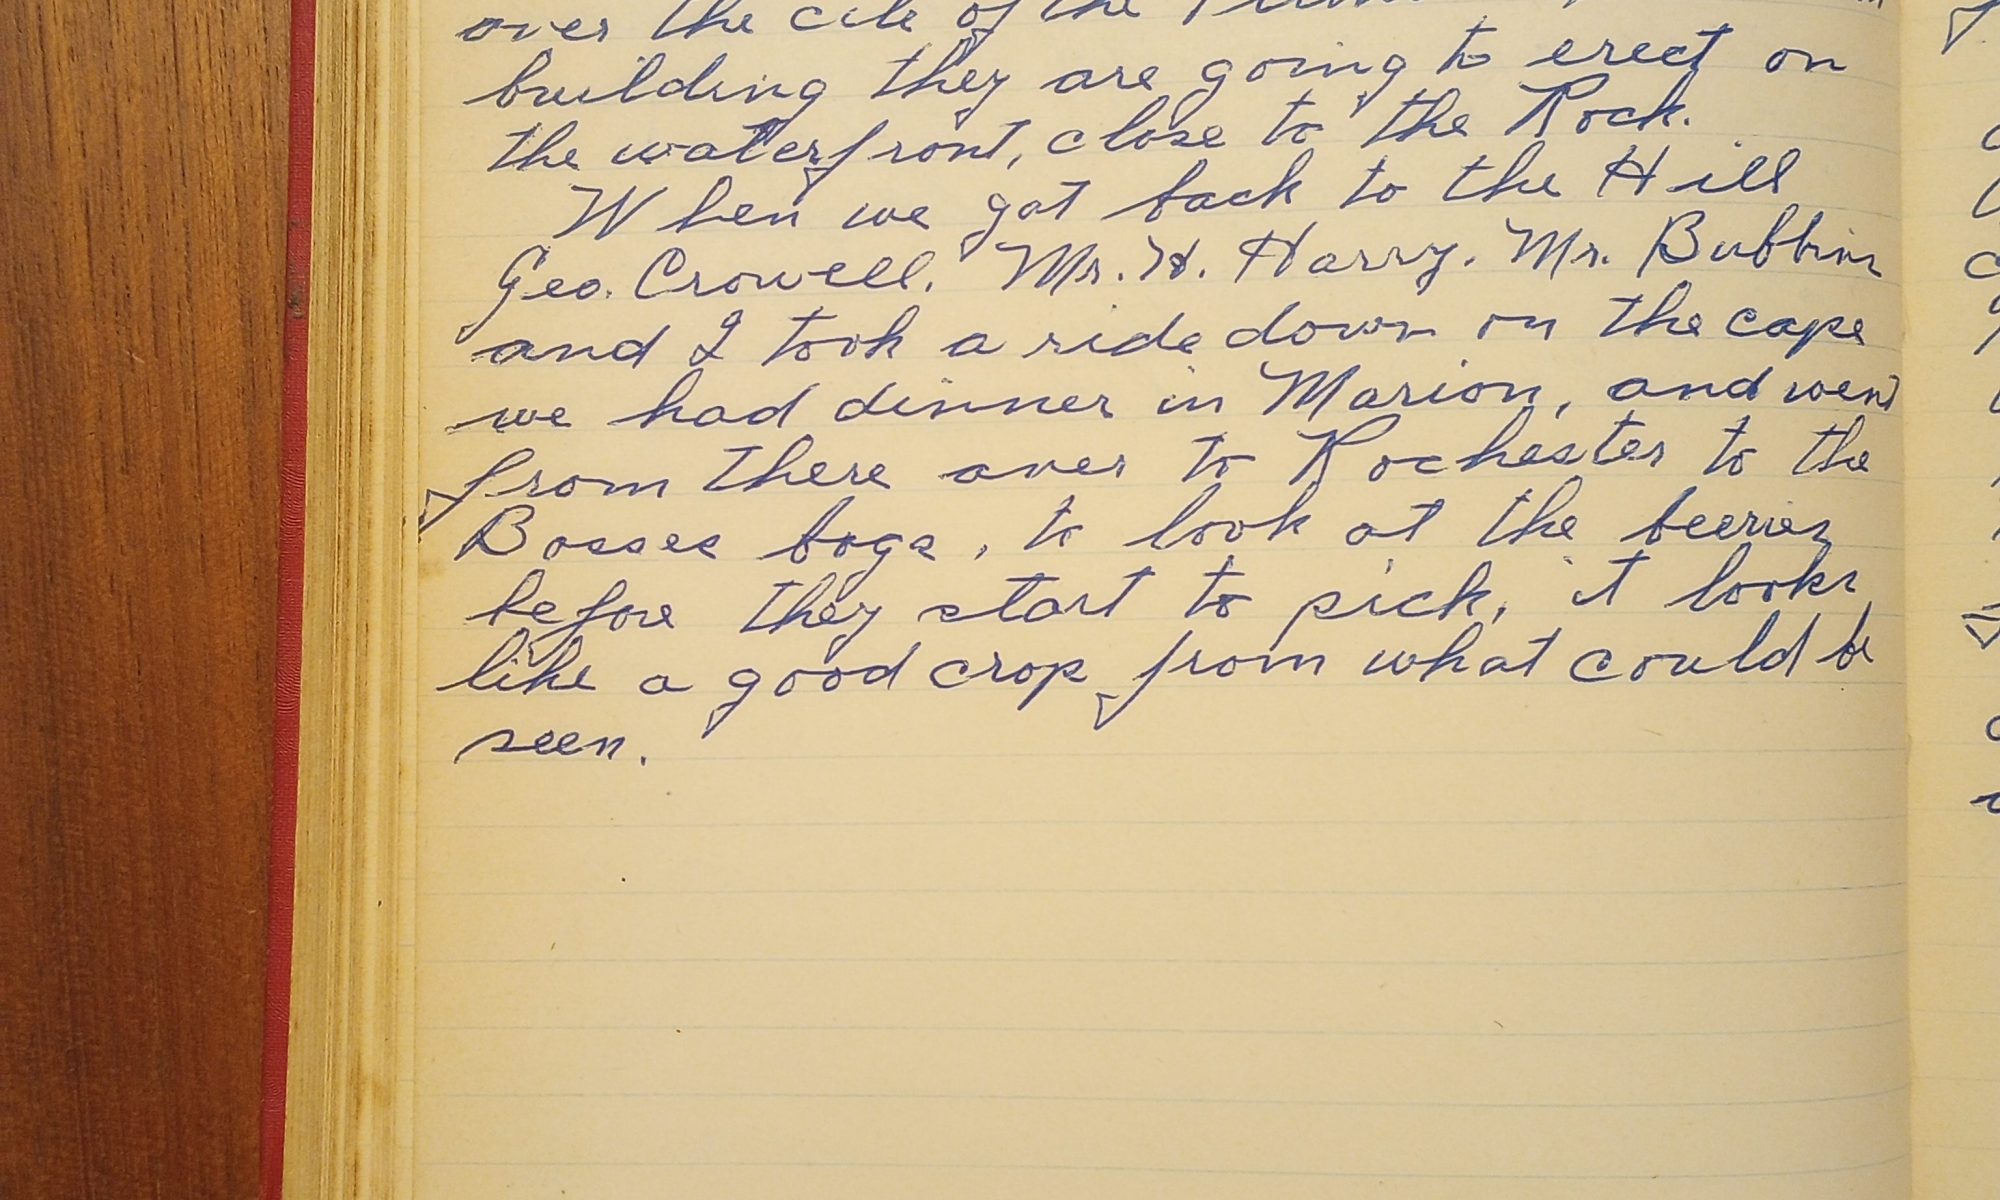 over the cite of the
building they are going to erect on
the waterfront, close to the Rock.
When we got back to the Hill
Geo. Crowell. Mr. H. Harry. Mr. Bubbins
and I took a ride down on the cape
we had dinner in Marion, and went
from there over to Rochester to the
Bosses bogs, to look at the beeries
before they start to pick, it looks
like a good crop from what could be
seen.